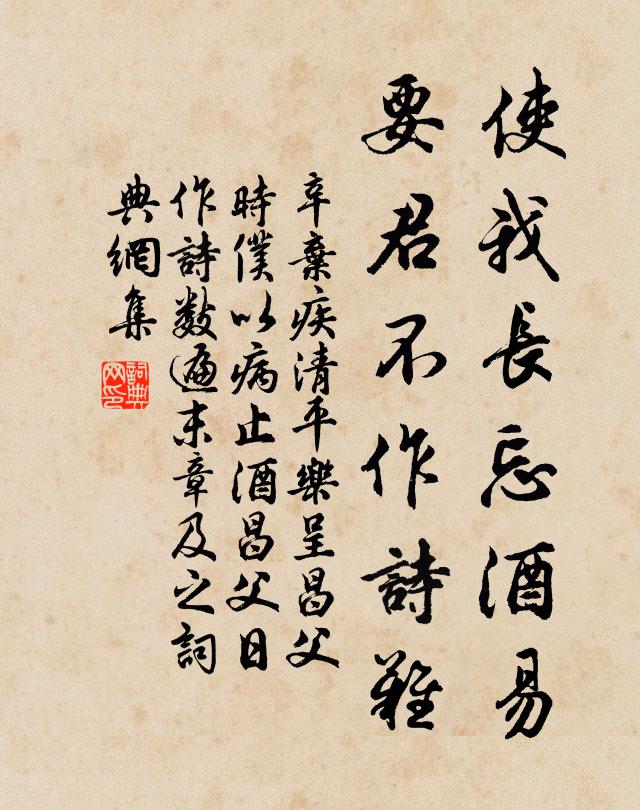 使我長忘酒易
要君不作詩難
辛棄疾清平樂呈昌父
時僕以病止酒昌父日
作詩數遍末章及之詞
典網集
詞典网印